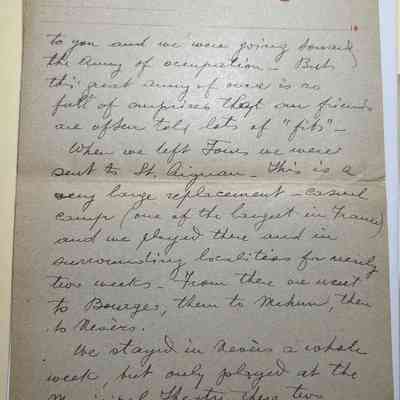 to you and we were going toward
the Army of occupation - But
this great army of ours is so
full of surprises that our friends
are often told lots of "fibs" -
When we left Tours we were
sent to St. Aignan - This is a
very large replacement - casual
camp (one of the largest in France)
and we played there and in
surrounding localities for nearly
two weeks - From there we went
to Bourges, then to Mehun, then
to Nevers.
We stayed in Nevers a whole
week, but only played at the
Municipal Theatre there two